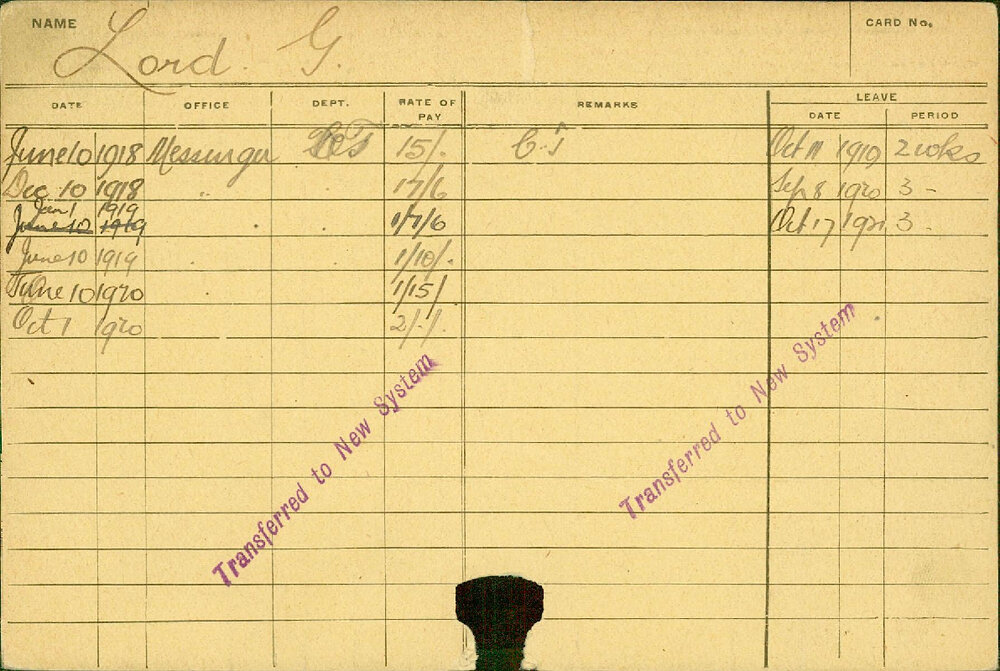 NAME Lord. G. CARD No.
LEAVE
DATE OFFICE DEPT. RATE OF PAY REMARKS DATE PERIOD
June 10 1918 Messenger 15/. C.T Oct 11 1919 2 wks
Dec 10 1918 " 17/6 Sep 8 1920 3 -
Jan 1 1919
June 10 1919 . . 1/7/6 Oct 17 1921 3 -
June 10 1919 . 1/10/.
June 10 1920 . . 1/15/
Oct 1 1920 2/./.
Transferred to New System
Transferred to New System